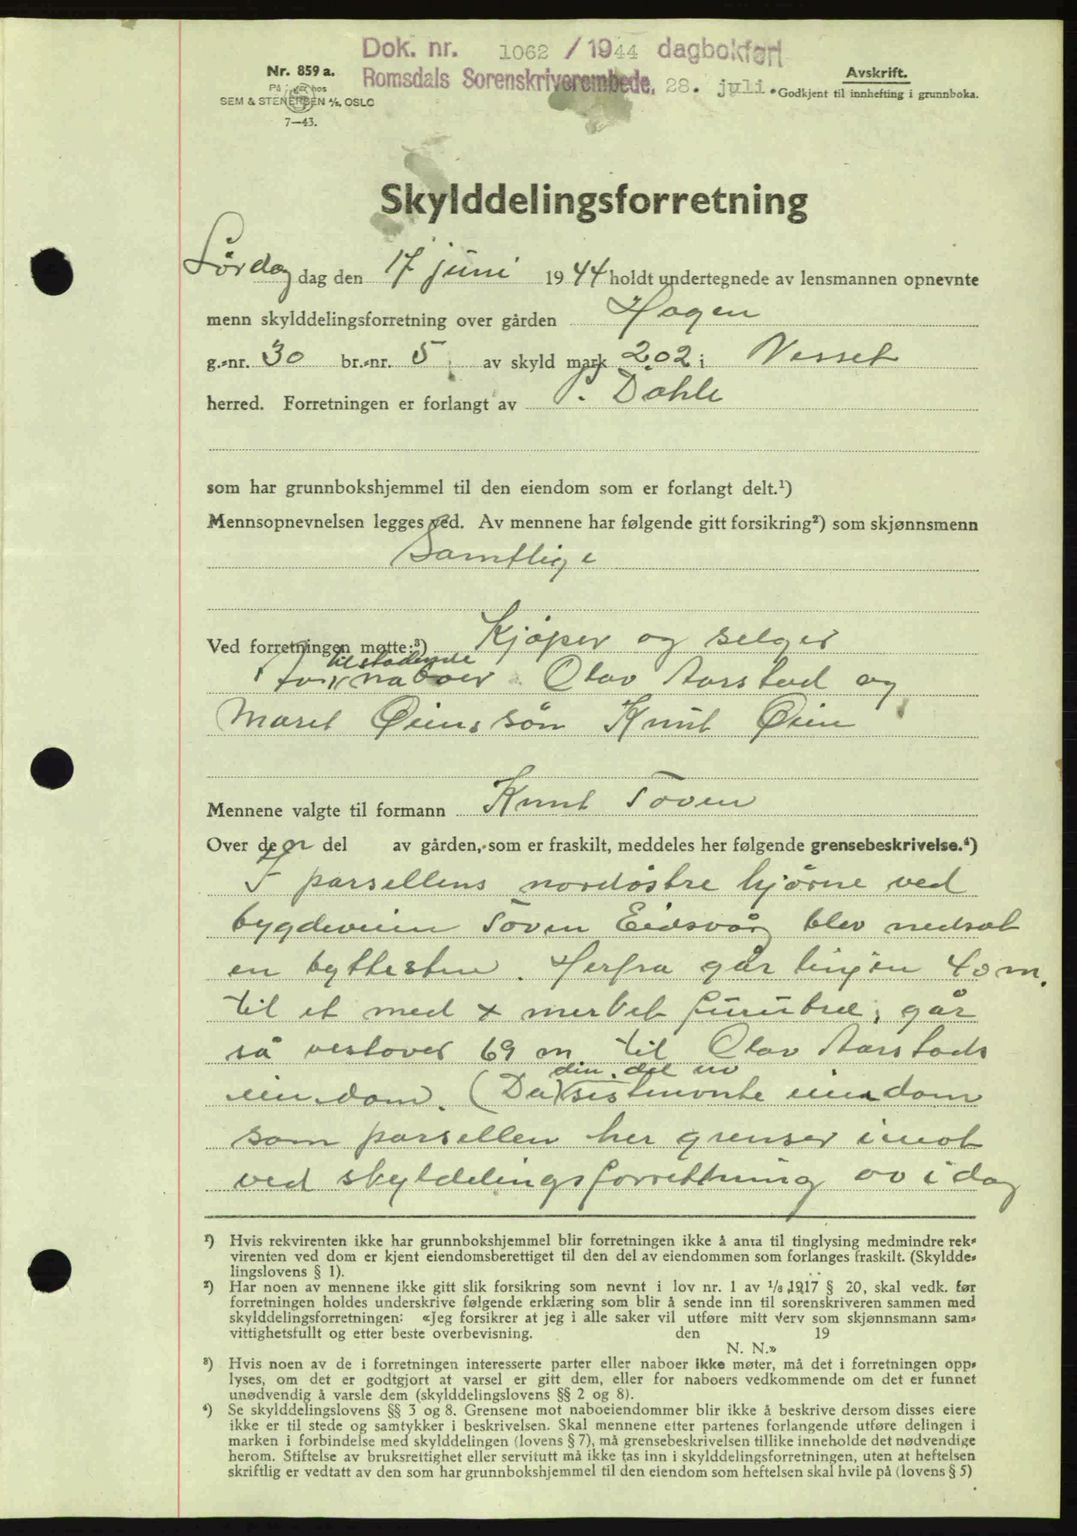 Dok. nr. 1062 / 1944 dagbokført
Romsdals Sorenskriverembede, 28. juli.
Nr. 859 a.
På hos
SEM & STENERSEN A/S, OSLO
7—43.
Avskrift.
Godkjent til innhefting i grunnboka.
Skylddelingsforretning
Lørdag dag den 17 juni 1944 holdt undertegnede av lensmannen opnevnte
menn skylddelingsforretning over gården Hagen
g.-nr. 30 br.-nr. 5 av skyld mark 2.02 i Nesset
herred. Forretningen er forlangt av P. Dahle
som har grunnbokshjemmel til den eiendom som er forlangt delt.¹)
Mennsopnevnelsen legges ved. Av mennene har følgende gitt forsikring²) som skjønnsmenn
Samtlige
Ved forretningen møtte:³) Kjøper og selger
tilstodende
for naboer Olav Aarstad og
Marit Øiens søn Knut Øien
Mennene valgte til formann Knut Toven
Over den del av gården, som er fraskilt, meddeles her følgende grensebeskrivelse.⁴)
I parsellens nordøstre hjørne ved
bygdeveien Toven Eidsvåg blev nedsat
en byttesten. Herfra går linjen 40 m.
til et med x merket furutræ, går
så vestover 69 m til Olav Aarstads
din. del av
eiendom. (Den sistnevnte eiendom
som parsellen her grenser imot
ved skylddelingsforrettning av idag
¹) Hvis rekvirenten ikke har grunnbokshjemmel blir forretningen ikke å anta til tinglysing medmindre rek-
virenten ved dom er kjent eiendomsberettiget til den del av eiendommen som forlanges fraskilt. (Skyldde-
lingslovens § 1).
²) Har noen av mennene ikke gitt slik forsikring som nevnt i lov nr. 1 av 1/8 1917 § 20, skal vedk. før
forretningen holdes underskrive følgende erklæring som blir å sende inn til sorenskriveren sammen med
skylddelingsforretningen: «Jeg forsikrer at jeg i alle saker vil utføre mitt verv som skjønnsmann sam-
vittighetsfullt og etter beste overbevisning. den 19
N. N.»
³) Hvis noen av de i forretningen interesserte parter eller naboer ikke møter, må det i forretningen opp-
lyses, om det er godtgjort at varsel er gitt dem, eller for naboers vedkommende om det er funnet
unødvendig å varsle dem (skylddelingslovens §§ 2 og 8).
⁴) Se skylddelingslovens §§ 3 og 8. Grensene mot naboeiendommer blir ikke å beskrive dersom disses eiere
ikke er til stede og samtykker i beskrivelsen. Skal mennene etter partenes forlangende utføre delingen i
marken i forbindelse med skylddelingen (lovens § 7), må grensebeskrivelsen tillike inneholde det nødvendige
herom. Stiftelse av bruksrettighet eller servitutt må ikke tas inn i skylddelingsforretningen, uten at heftelsen
skriftlig er vedtatt av den som har grunnbokshjemmel til den eiendom som heftelsen skal hvile på (lovens § 5)